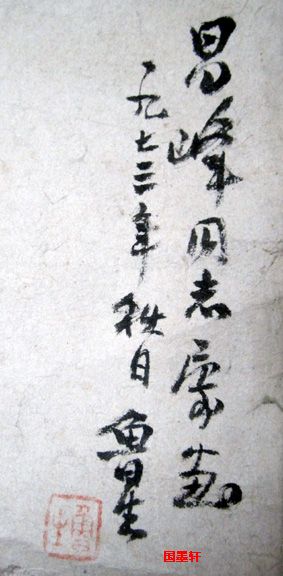 昌峰同志索画
一九七三年秋日
国墨轩